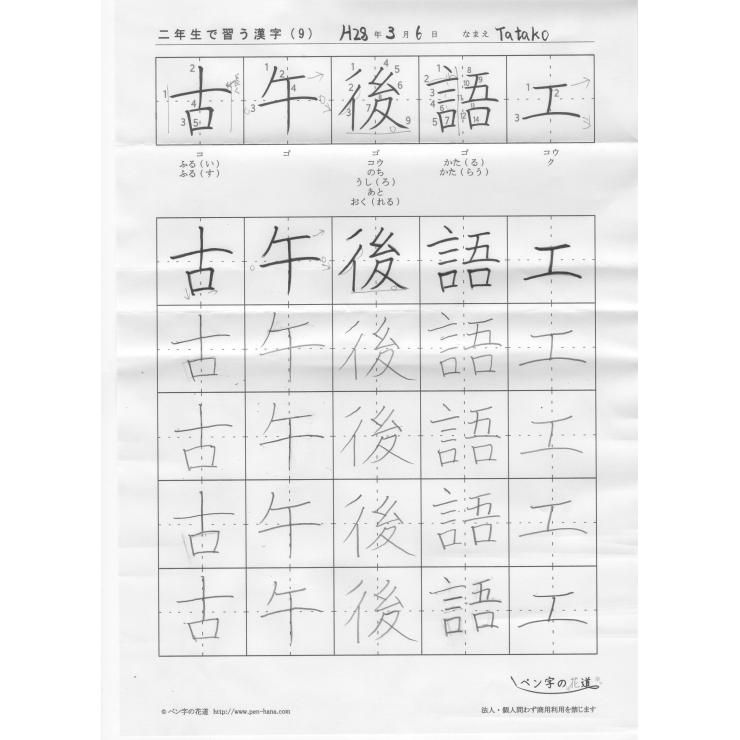 二年生で習う漢字(9) H28年3月6日 なまえ Tatako
古 午 後 語 工
コ ゴ ゴ ゴ コウ
ふる(い) コウ かた(る) ク
ふる(す) のち かた(らう)
うし(ろ)
あと
おく(れる)
古 午 後 語 工
古 午 後 語 工
古 午 後 語 工
古 午 後 語 工
古 午 後 語 工
ペン字の花道
© ペン字の花道 http://www.pen-hana.com 法人・個人問わず商用利用を禁じます